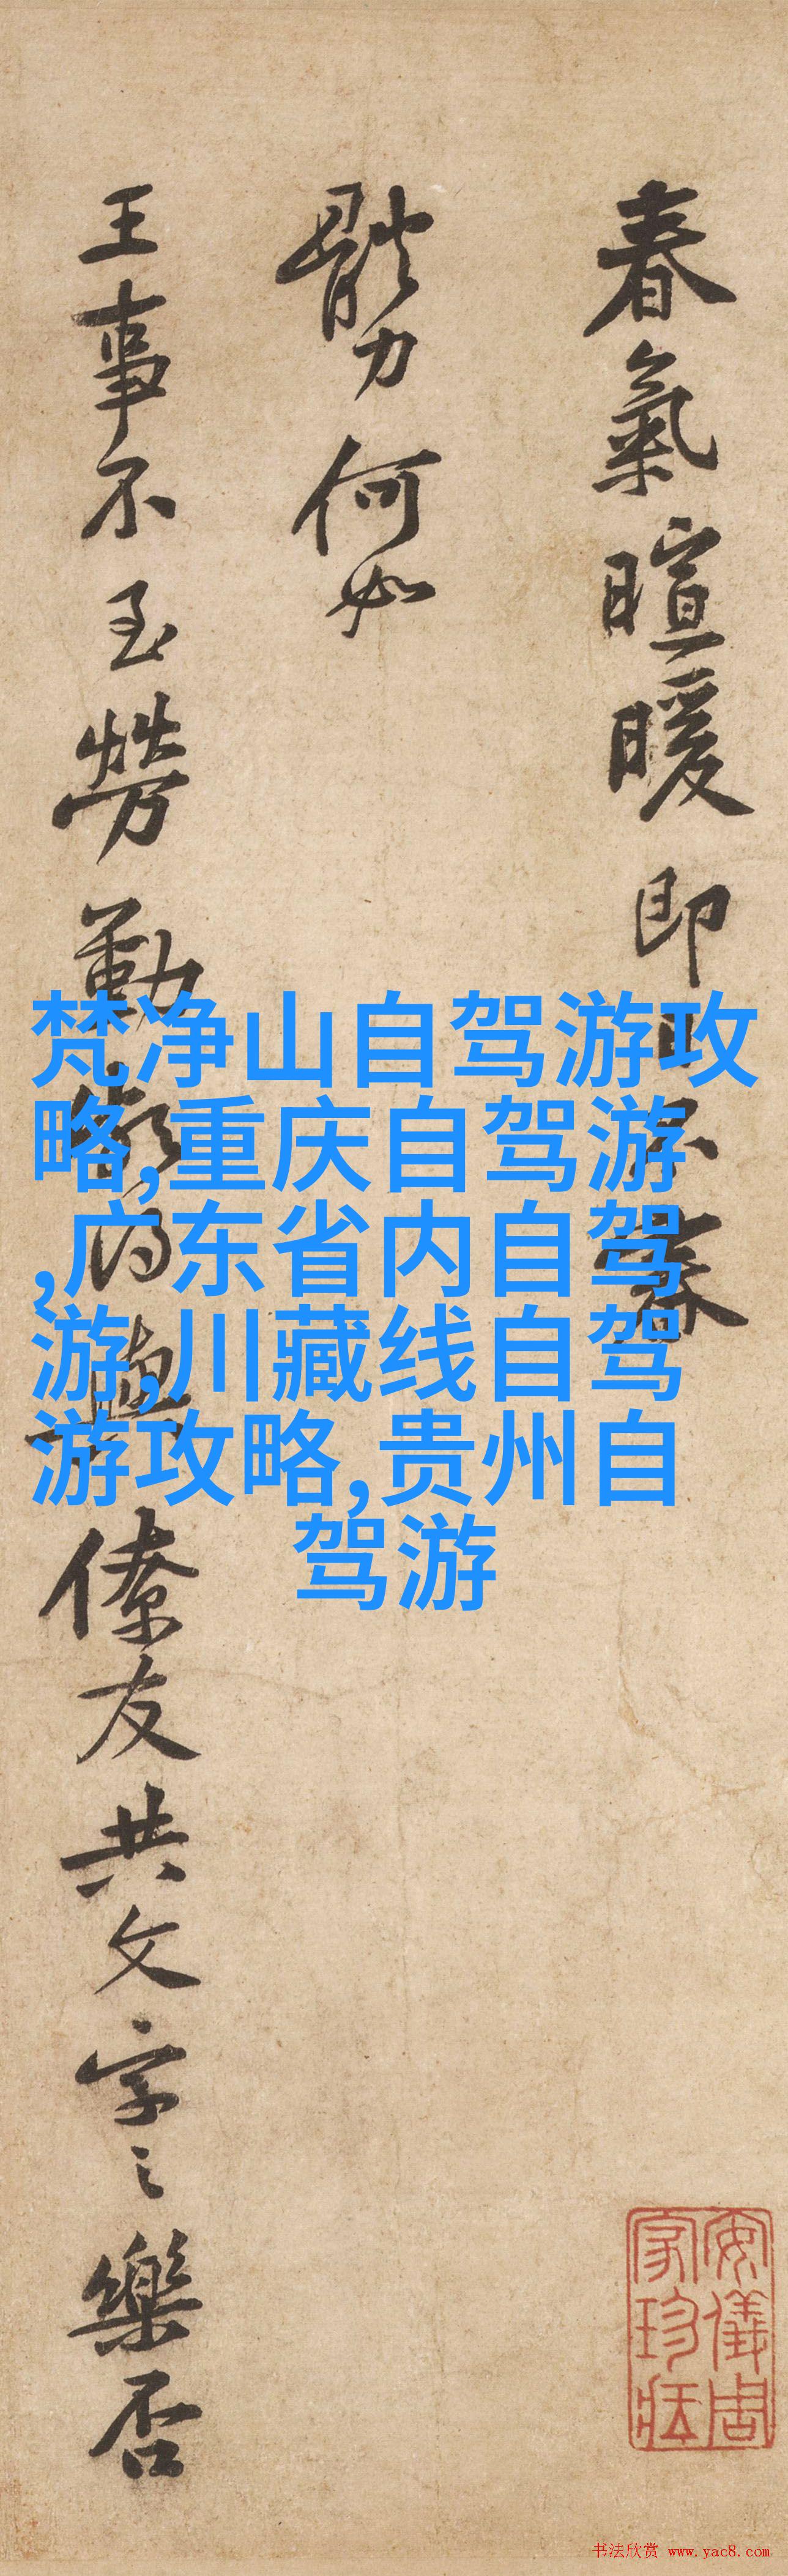 春氣暄暖即日
體力何如
王事不至勞勤
與
僚友共文字之樂否
梵净山自驾游攻
略,重庆自驾游
,广东省内自驾
游,川藏线自驾
游攻略,贵州自
驾游
安儀周
家珍藏
书法欣赏 www.yac8.com